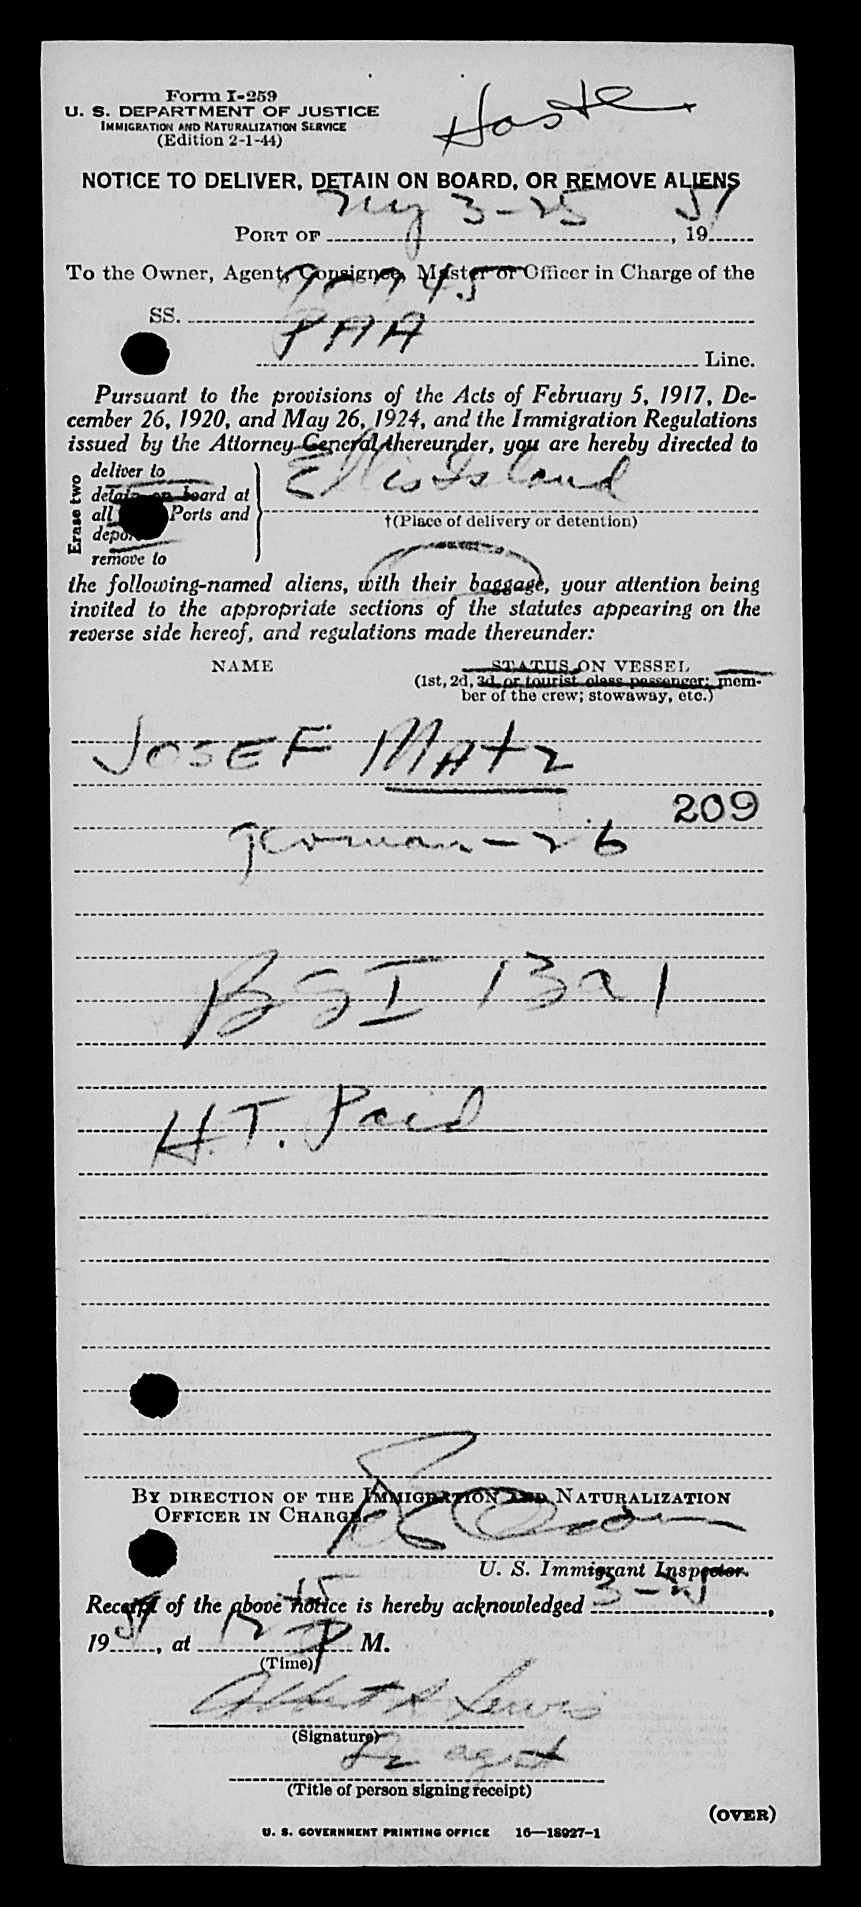 Form I-259
U. S. DEPARTMENT OF JUSTICE
IMMIGRATION AND NATURALIZATION SERVICE
(Edition 2-1-44)
NOTICE TO DELIVER, DETAIN ON BOARD, OR REMOVE ALIENS
PORT OF NY 3-25, 19 51
To the Owner, Agent, Consignee, Master or Officer in Charge of the
SS.
PAA Line.
Pursuant to the provisions of the Acts of February 5, 1917, De-
cember 26, 1920, and May 26, 1924, and the Immigration Regulations
issued by the Attorney General thereunder, you are hereby directed to
Erase two
deliver to
detain on board at
all Ports and
deport
remove to
Ellis Island
†(Place of delivery or detention)
the following-named aliens, with their baggage, your attention being
invited to the appropriate sections of the statutes appearing on the
reverse side hereof, and regulations made thereunder:
NAME STATUS ON VESSEL
(1st, 2d, 3d, or tourist class passenger; mem-
ber of the crew; stowaway, etc.)
JOSEF MATZ
209
- 26
BSI 1321
H.T. Paid
BY DIRECTION OF THE IMMIGRATION AND NATURALIZATION
OFFICER IN CHARGE.
U. S. Immigrant Inspector.
Receipt of the above notice is hereby acknowledged 3-25,
19 51, at P M.
(Time)
Albert A Lewis
(Signature)
agent
(Title of person signing receipt)
(OVER)
U. S. GOVERNMENT PRINTING OFFICE 16—18927-1